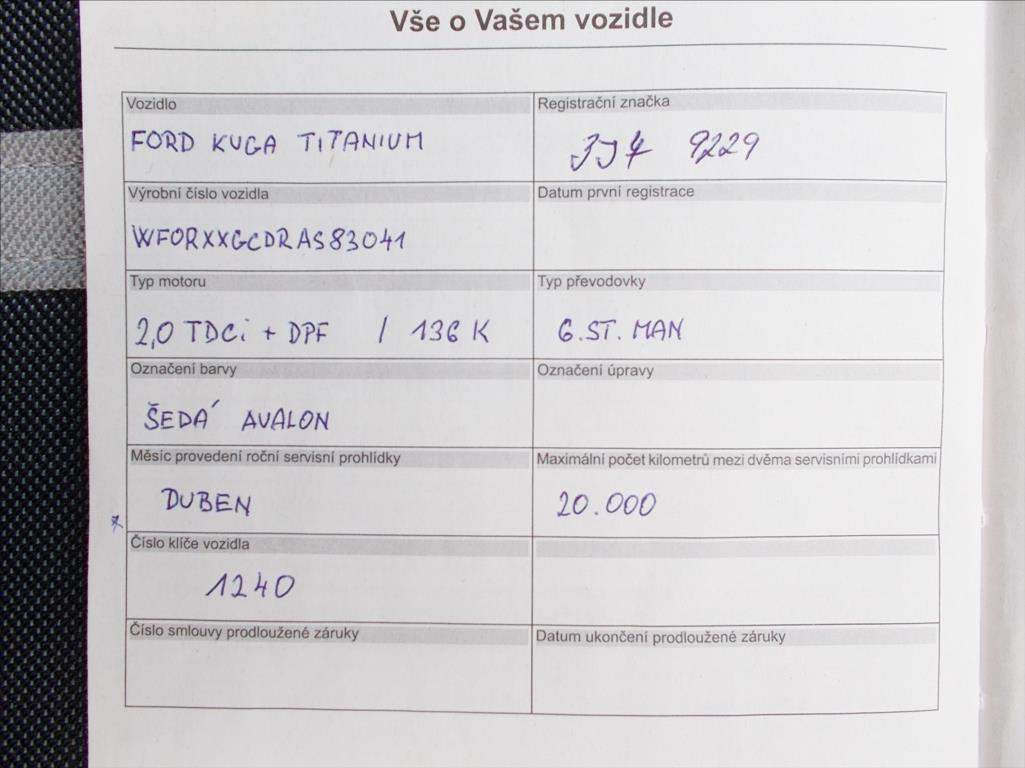 Vše o Vašem vozidle
Vozidlo
FORD KUGA TITANIUM
Registrační značka
9229
Výrobní číslo vozidla
WFORXXGCDRAS83041
Datum první registrace
Typ motoru
2,0 TDCi + DPF / 136 K
Typ převodovky
6.ST. MAN
Označení barvy
ŠEDÁ AVALON
Označení úpravy
Měsíc provedení roční servisní prohlídky
DUBEN
Maximální počet kilometrů mezi dvěma servisními prohlídkami
20.000
Číslo klíče vozidla
1240
Číslo smlouvy prodloužené záruky
Datum ukončení prodloužené záruky